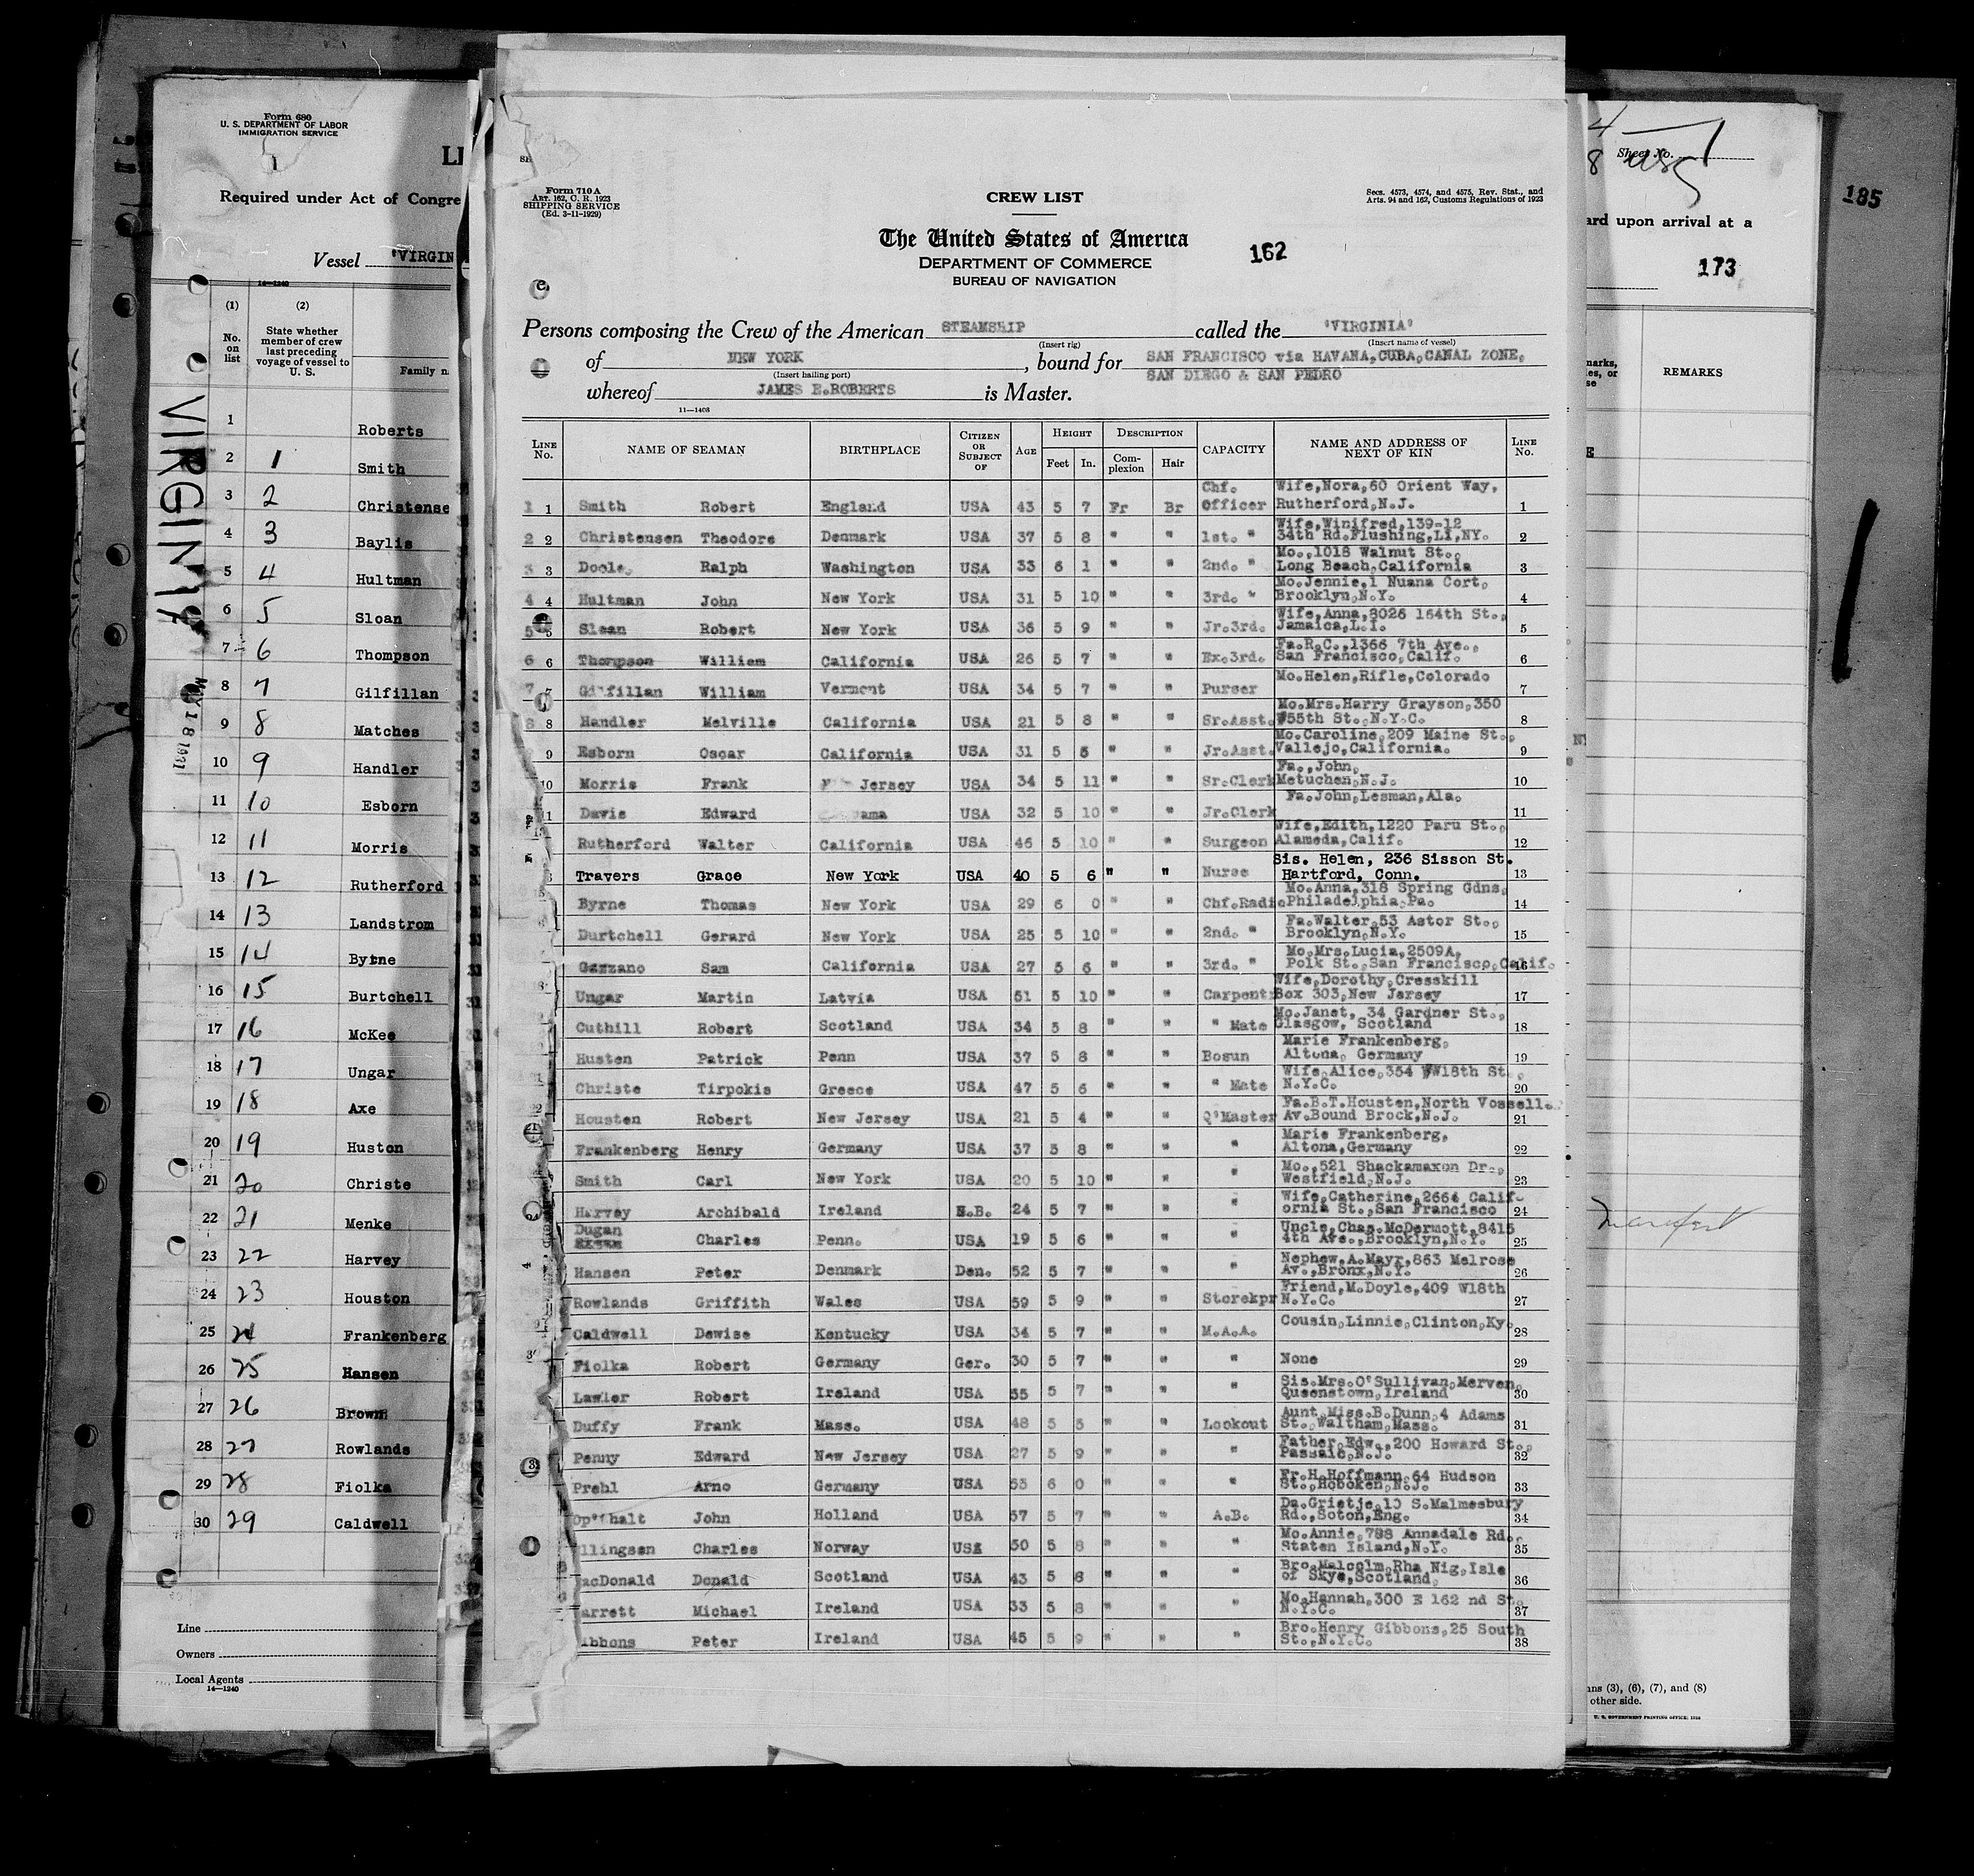 Form 680
U. S. DEPARTMENT OF LABOR
IMMIGRATION SERVICE
1
LI
Required under Act of Congre
Vessel "VIRGIN
14—1240
(1) (2)
No. on list
State whether member of crew last preceding voyage of vessel to U. S.
Family n
VIRGINIA
MAY 18 1931
1 Roberts
2 1 Smith
3 2 Christense
4 3 Baylis
5 4 Hultman
6 5 Sloan
7 6 Thompson
8 7 Gilfillan
9 8 Matches
10 9 Handler
11 10 Esborn
12 11 Morris
13 12 Rutherford
14 13 Landstrom
15 14 Byrne
16 15 Burtchell
17 16 McKee
18 17 Ungar
19 18 Axe
20 19 Huston
21 20 Christe
22 21 Menke
23 22 Harvey
24 23 Houston
25 24 Frankenberg
26 25 Hansen
27 26 Brown
28 27 Rowlands
29 28 Fiolka
30 29 Caldwell
Line
Owners
Local Agents
14—1240
Form 710 A
Art. 162, C. R. 1923
SHIPPING SERVICE
(Ed. 3-11-1929)
CREW LIST
Secs. 4573, 4574, and 4575, Rev. Stat., and
Arts. 94 and 162, Customs Regulations of 1923
The United States of America
162
DEPARTMENT OF COMMERCE
BUREAU OF NAVIGATION
Persons composing the Crew of the American STEAMSHIP called the "VIRGINIA"
(Insert rig) (Insert name of vessel)
of NEW YORK, bound for SAN FRANCISCO via HAVANA,CUBA,CANAL ZONE,
(Insert hailing port) SAN DIEGO & SAN PEDRO
whereof JAMES E.ROBERTS is Master.
11—1408
LINE No. NAME OF SEAMAN BIRTHPLACE CITIZEN OR SUBJECT OF AGE HEIGHT Feet In. DESCRIPTION Complexion Hair CAPACITY NAME AND ADDRESS OF NEXT OF KIN LINE No.
1 1 Smith Robert England USA 43 5 7 Fr Br Chf. Officer Wife,Nora,60 Orient Way, Rutherford,N.J. 1
2 2 Christensen Theodore Denmark USA 37 5 8 " " 1st. " Wife,Winifred,139-12 34th Rd.Flushing,LI,NY. 2
3 3 Ralph Washington USA 33 6 1 " " 2nd. " Mo.,1018 Walnut St., Long Beach,California 3
4 4 Hultman John New York USA 31 5 10 " " 3rd. " Mo.Jennie,1 Nuana Cort, Brooklyn,N.Y. 4
5 5 Sloan Robert New York USA 36 5 9 " " Jr.3rd. Wife,Anna,8026 164th St., Jamaica,L.I. 5
6 6 Thompson William California USA 26 5 7 " " Ex.3rd. Fa.R.C.,1366 7th Ave., San Francisco,Calif. 6
7 7 Gilfillan William Vermont USA 34 5 7 " " Purser Mo.Helen,Rifle,Colorado 7
8 8 Handler Melville California USA 21 5 8 " " Sr.Asst. Mo.Mrs.Harry Grayson,350 W55th St.,N.Y.C. 8
9 Esborn Oscar California USA 31 5 5 " " Jr.Asst. Mo.Caroline,209 Maine St., Vallejo,California. 9
10 Morris Frank Jersey USA 34 5 11 " " Sr.Clerk Fa.,John, Metuchen,N.J. 10
11 Davis Edward ama USA 32 5 10 " " Jr.Clerk Fa.John,Lesman,Ala. 11
Rutherford Walter California USA 46 5 10 " " Surgeon Wife,Edith,1220 Paru St., Alameda,Calif. 12
Travers Grace New York USA 40 5 6 " " Nurse Sis. Helen, 236 Sisson St. Hartford, Conn. 13
Byrne Thomas New York USA 29 6 0 " " Chf.Radio Mo.Anna,318 Spring Gdns, Philadelphia,Pa. 14
Durtchell Gerard New York USA 25 5 10 " " 2nd. " Fa.Walter,53 Astor St., Brooklyn,N.Y. 15
Gazzano Sam California USA 27 5 6 " " 3rd. " Mo.Mrs.Lucia,2509A, Polk St.,San Francisco,Calif. 16
Ungar Martin Latvia USA 51 5 10 " " Carpentr Wife,Dorothy,Cresskill Box 303,New Jersey 17
Cuthill Robert Scotland USA 34 5 8 " " " Mate Mo.Janet, 34 Gardner St., Glasgow, Scotland 18
Husten Patrick Penn USA 37 5 8 " " Bosun Marie Frankenberg, Altona, Germany 19
Christe Tirpokis Greece USA 47 5 6 " " " Mate Wife,Alice,354 WW18th St N.Y.C. 20
Housten Robert New Jersey USA 21 5 4 " " Q'Master Fa.B.T.Housten,North Vosselle Av.Bound Brock,N.J. 21
Frankenberg Henry Germany USA 37 5 8 " " " Marie Frankenberg, Altona,Germany 22
Smith Carl New York USA 20 5 10 " " " Mo.,521 Shackamaxon Dr., Westfield,N.J. 23
Harvey Archibald Ireland 24 5 7 " " " Wife,Catherine,2664 Calif- ornia St.,San Francisco 24
Dugan Charles Penn. USA 19 5 6 " " " Uncle,Chas.McDermott,8415 4th Ave.,Brooklyn,N.Y. 25
Hansen Peter Denmark Den. 52 5 7 " " " Nephew,A.Mayr,863 Melrose Av.,Bronx,N.Y. 26
Rowlands Griffith Wales USA 59 5 9 " " Storekpr Friend,M.Doyle,409 W18th N.Y.C. 27
Caldwell Dewise Kentucky USA 34 5 7 " " M.A.A. Cousin,Linnie,Clinton,Ky. 28
Fiolka Robert Germany Ger. 30 5 7 " " " None 29
Lawler Robert Ireland USA 55 5 7 " " " Sis.Mrs.O'Sullivan,Merven, Queenstown,Ireland 30
Duffy Frank Mass. USA 48 5 5 " " Lookout Aunt,Miss.B.Dunn,4 Adams St.,Waltham,Mass. 31
Penny Edward New Jersey USA 27 5 9 " " " Father,Edw.,200 Howard St., Passaic,N.J. 32
Prehl Arno Germany USA 53 6 0 " " " Fr.H.Hoffmann,64 Hudson St.,Hoboken,N.J. 33
Op't halt John Holland USA 57 5 7 " " A.B. Da.Grietje,10 S.Malmesbury Rd.,Soton,Eng. 34
llingsen Charles Norway USA 50 5 8 " " " Mo.Annie,788 Annadale Rd., Staten Island,N.Y. 35
acDonald Donald Scotland USA 43 5 8 " " " Bro.Malcolm,Rha Nig,Isle of Skye,Scotland, 36
arrett Michael Ireland USA 33 5 8 " " " Mo.Hannah,300 E 162 nd St. N.Y.C. 37
ibbons Peter Ireland USA 45 5 9 " " " Bro.Henry Gibbons,25 South St.,N.Y.C. 38
4
8
Sheet No. 1
ard upon arrival at a
173
185
REMARKS
ns (3), (6), (7), and (8)
other side.
U. S. GOVERNMENT PRINTING OFFICE